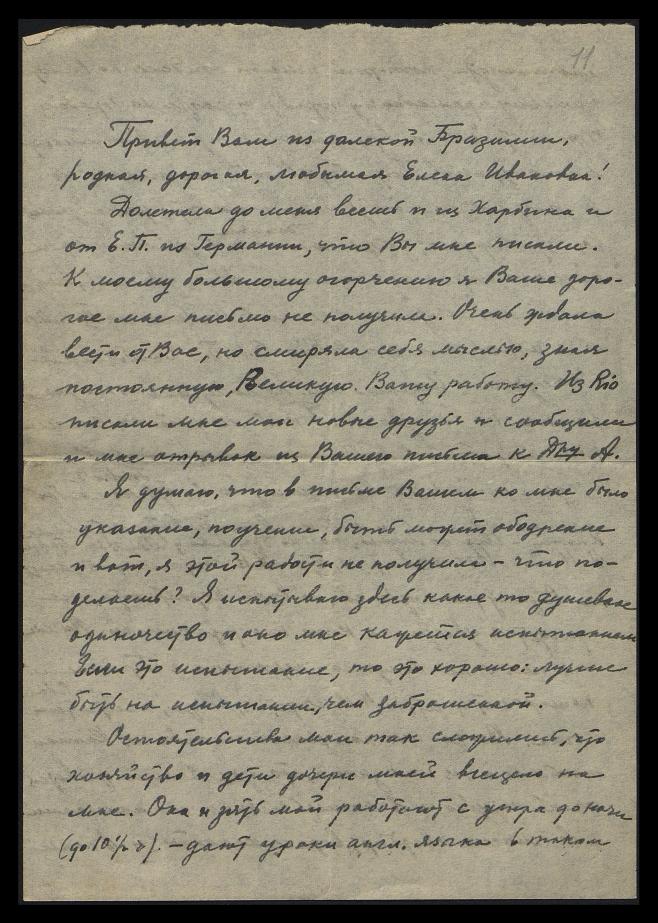 11
Привет Вам из далекой Бразилии,
родная, дорогая, любимая Елена Ивановна!
Долетела до меня весть и из Харбина и
от Е. П. из Германии, что Вы мне писали.
К моему большому огорчению я Ваше доро-
гое мне письмо не получила. Очень ждала
вести от Вас, но смиряла себя мыслью, зная
постоянную, Великую Вашу работу. Из Rio
писали мне мои новые друзья и сообщили
и мне отрывок из Вашего письма к А.
Я думаю, что в письме Вашем ко мне было
указание, поучение, быть может ободрение
и вот, я этой радости не получила – что по-
делаешь? Я испытываю здесь какое то душевное
одиночество и оно мне кажется испытанием
Если это испытание, то это хорошо: лучше
быть на испытании, чем заброшенной.
Обстоятельства мои так сложились, что
хозяйство и дети дочери моей всецело на
мне. Она и зять мой работают с утра до ночи
(до 10 ½ ). – дают уроки англ. языка в таком